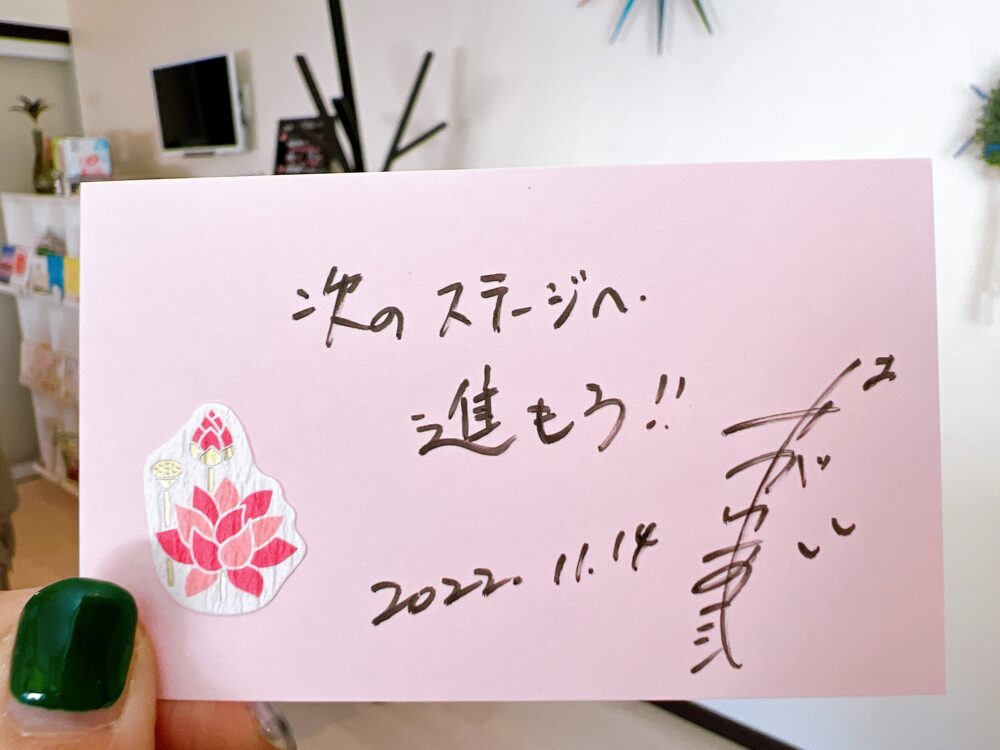 次のステージへ.
進もう!!
2022.11.14